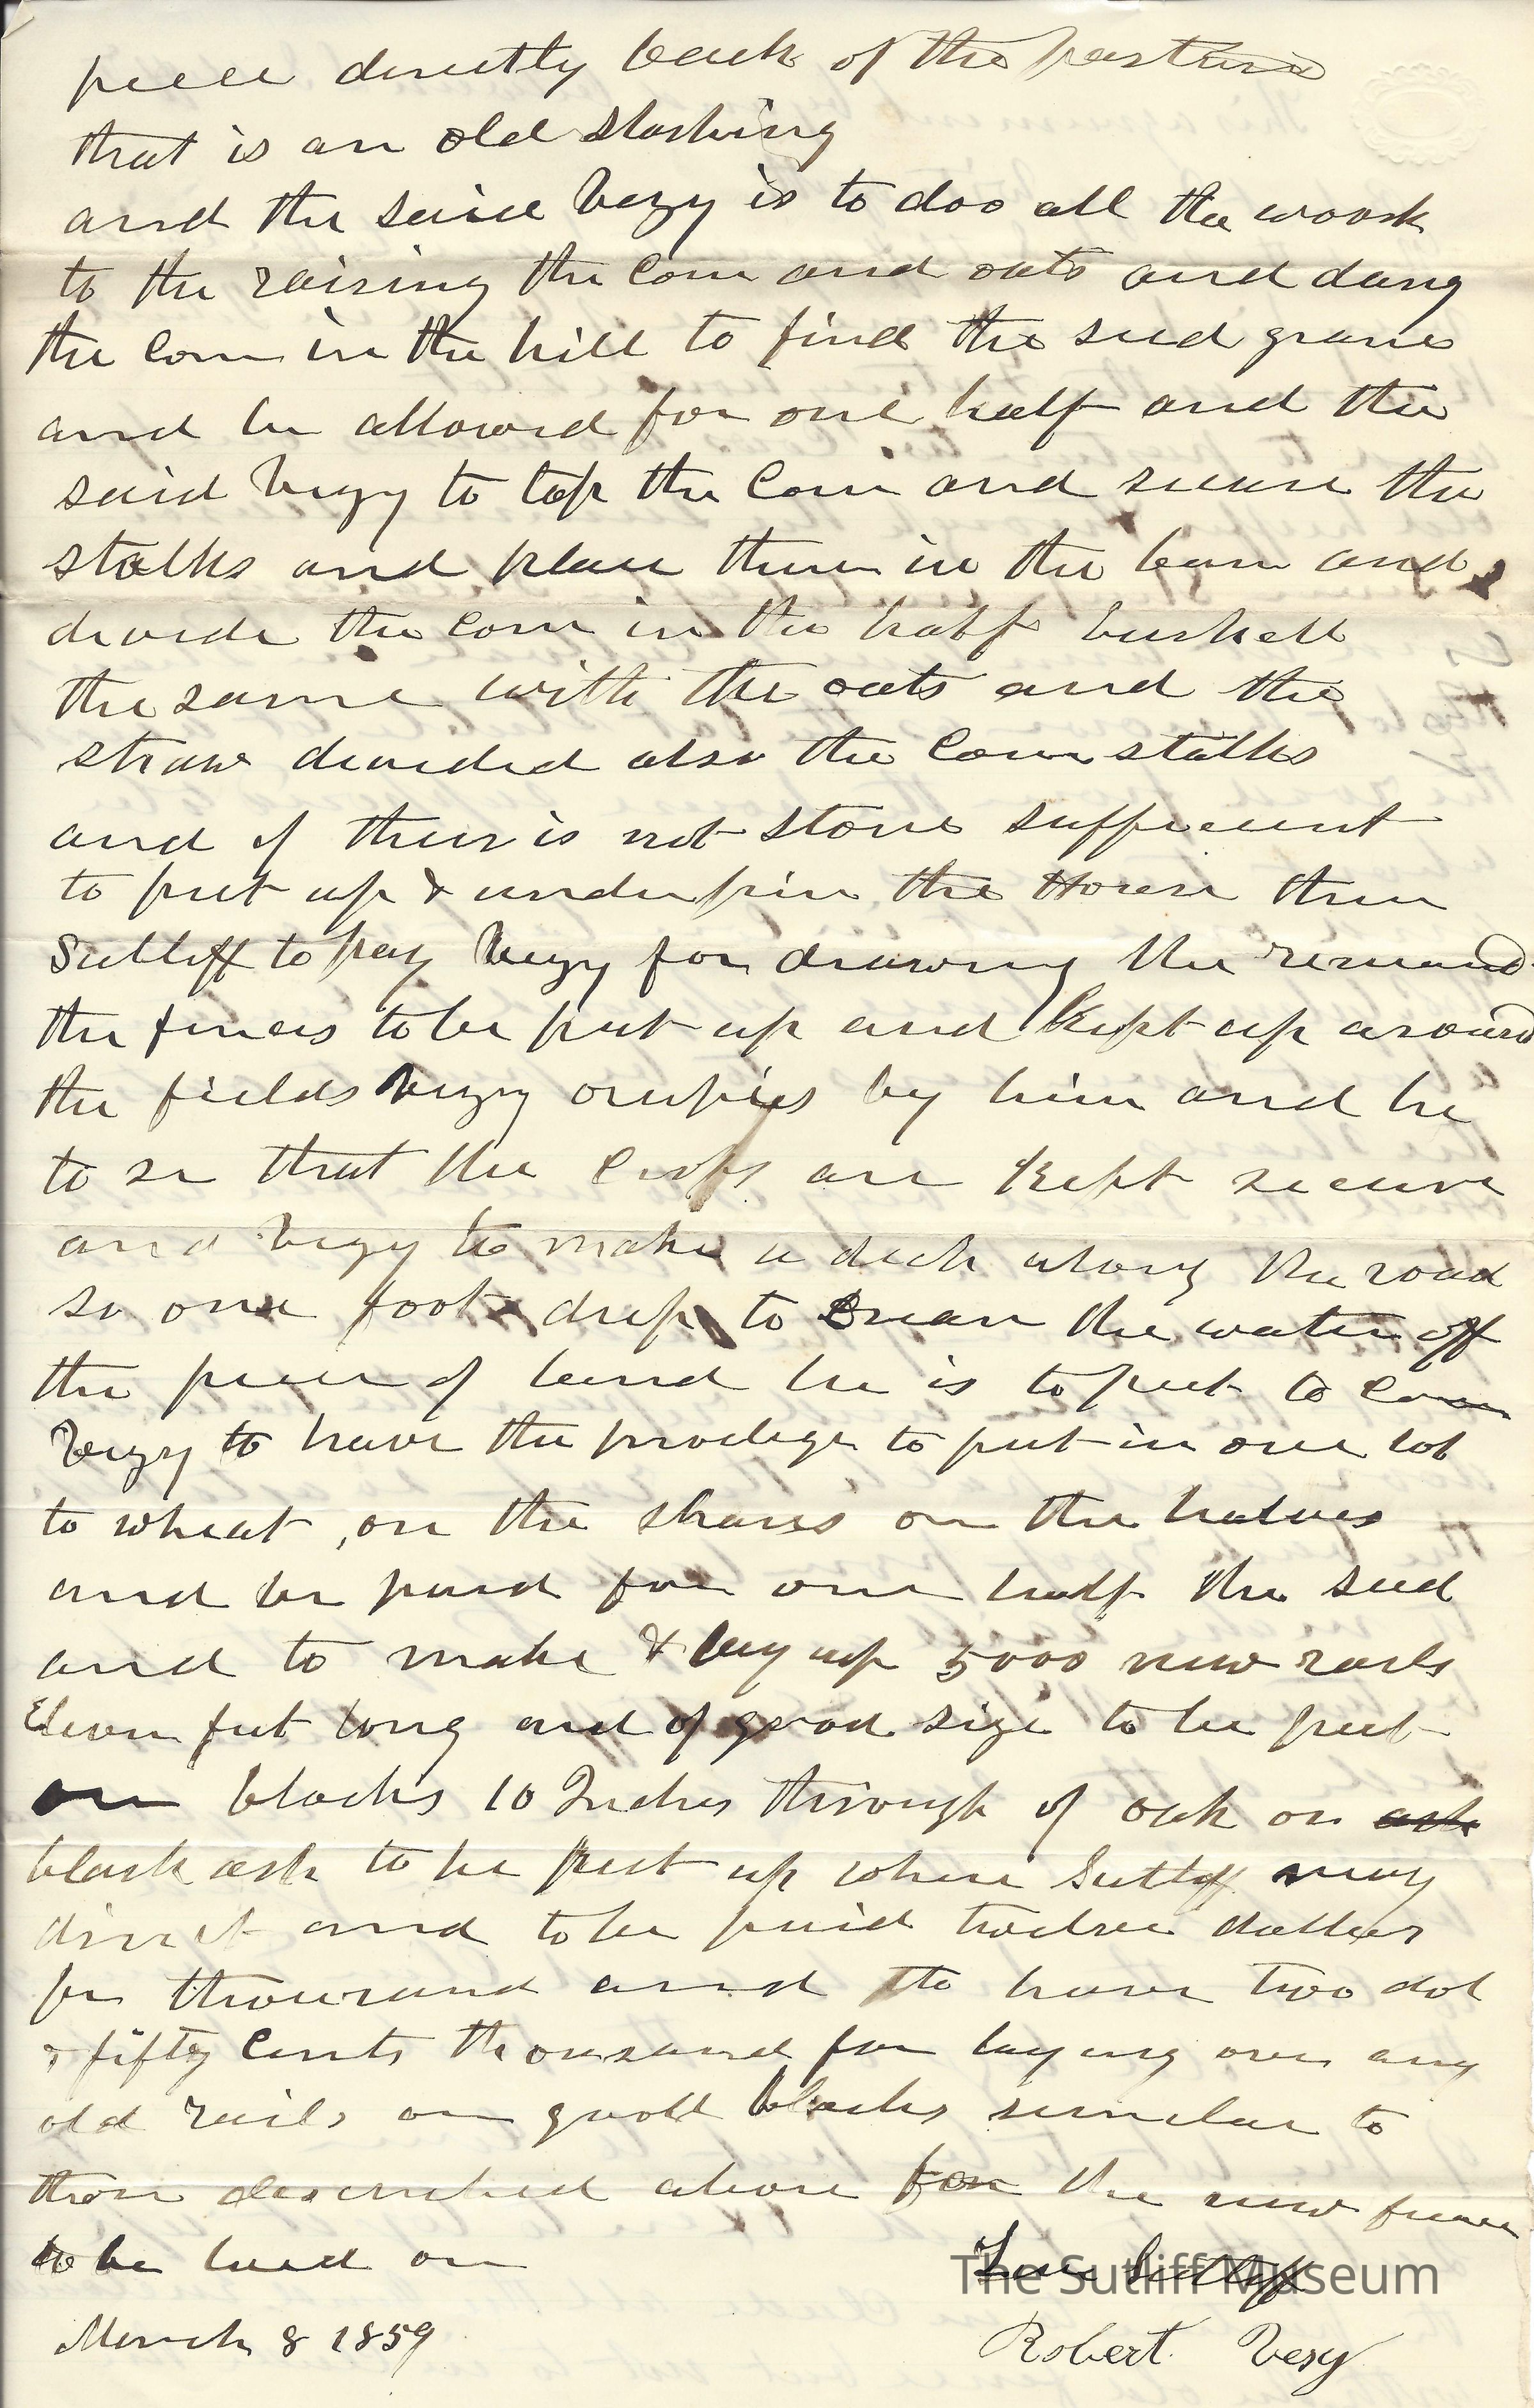 peece directly back of the pasture
that is an old slashing
and the said Vezy is to doo all the woork
to the raising the Corn and oats and dung
the Corn in the hill to find the seed grane
and be allowed for one half and the
said Vezy to top the Corn and secure the
stalks and place them in the barn and
devide the corn in the half bushell
the same with the oats and the
straw devided also the Corn stalks
and if their is not stone sufficient
to put up & underpin the House then
Sutliff to pay Vezy for drawing the remand
the fences to be put up and kept up around
the fields Vezy ocupies by him and he
to se that the Crops are kept secure
and Vezy to make a dich along the road
so one foot deep to the water off
the peece of land he is to put to Corn
Vezy to have the privelege to put in one lot
to wheat, on the shares on the halves
and be paid for one half the seed
and to make & lay up 5000 new rails
Eleven feet long and of good size to be put
on blocks 10 Inches through of oak or ash
black ash to be put up where Sutliff may
direct and to be paid twelve dollars
per thousand and to have two dol
& fifty Cents thousand for laying over any
old rails on good blocks similar to
those described above for the new fence
to be laid on
Sutliff
The Sutliff Museum
March 8 1859
Robert Vezy